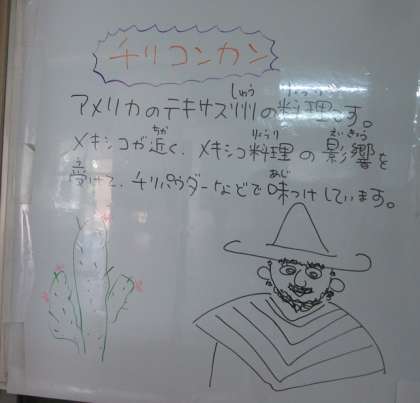 チリコンカン
アメリカのテキサス州の料理です。
メキシコが近く、メキシコ料理の影響を
受けて、チリパウダーなどで味つけしています。